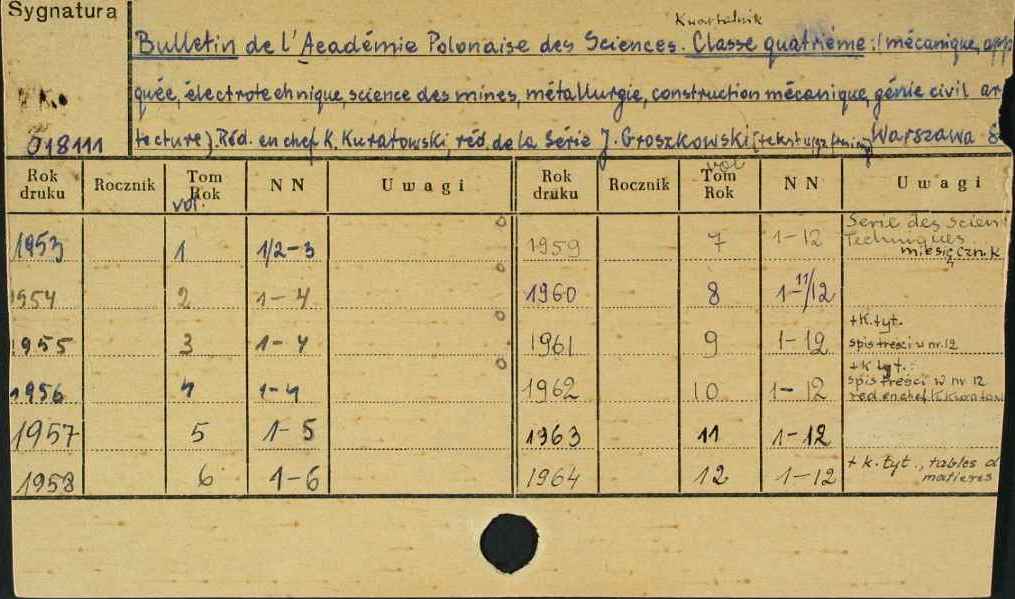 Sygnatura
Kwartalnik
Bulletin de l'Académie Polonaise des Sciences. Classe quatrième: (mécanique, app
quée, électrotechnique, science des mines, métallurgie, construction mécanique, génie civil ar
018111 tecture). Réd. en chef K. Kuratowski, réd. de la Série J. Groszkowski Warszawa
Rok druku Rocznik Tom Rok vol. NN Uwagi Rok druku Rocznik Tom Rok vol NN Uwagi
1953 1 1/2-3 1959 7 1-12 Serie des Scien Techniques miesięcznik
1954 2 1-4 1960 8 1-11/12
1955 3 1-4 1961 9 1-12 +K.tyt. spis treści w nr. 12
1956 4 1-4 1962 10 1-12 +K tyt.: spis treści w nr 12 red en chef K. Kuratow
1957 5 1-5 1963 11 1-12
1958 6 1-6 1964 12 1-12 + k. tyt., tables d matieres